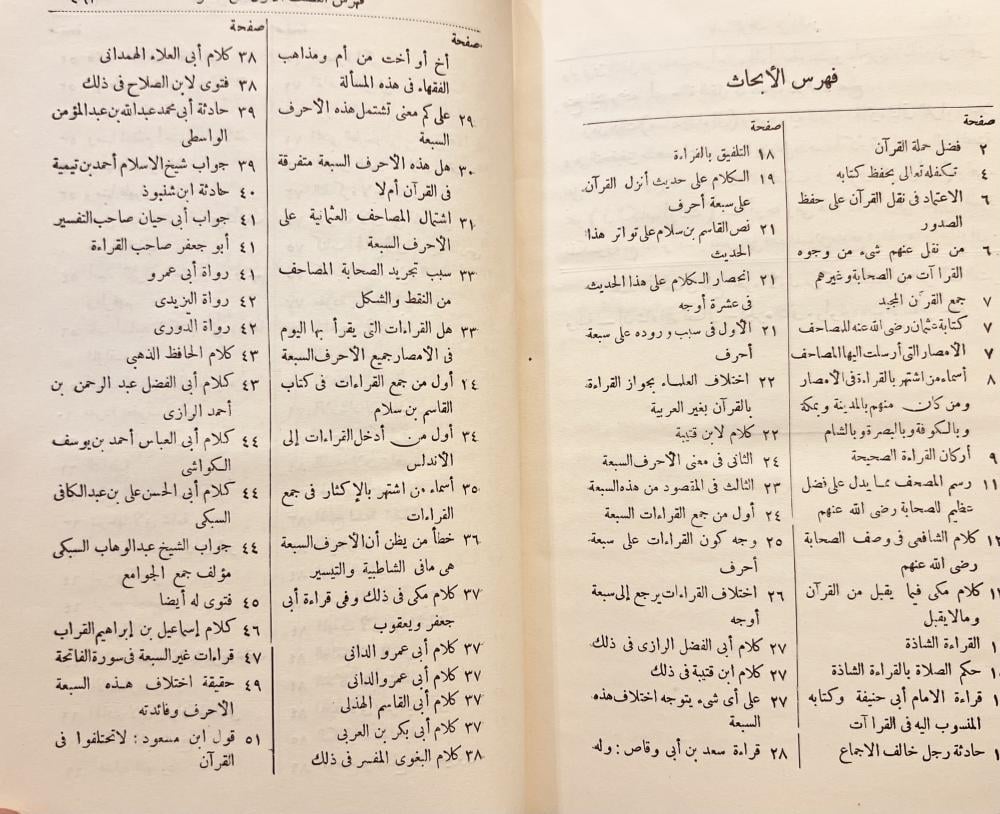 فهرس الأبحاث
صفحة
٢ فضل حملة القرآن
٤ تكفله تعالى بحفظ كتابه
٦ الاعتماد فى نقل القرآن على حفظ
الصدور
٦ من نقل عنهم شىء من وجوه
القراآت من الصحابة وغيرهم
٧ جمع القرآن المجيد
٧ كتابة عثمان رضى الله عنه للمصاحف
٧ الأمصار التى أرسلت اليها المصاحف
٨ أسماء من اشتهر بالقراءة فى الأمصار
ومن كان منهم بالمدينة وبمكة
وبالكوفة وبالبصرة وبالشام
٩ أركان القراءة الصحيحة
١١ رسم المصحف مما يدل على فضل
عظيم للصحابة رضى الله عنهم
١٢ كلام الشافعى فى وصف الصحابة
رضى الله عنهم
كلام مكى فيما يقبل من القرآن
ومالا يقبل
القراءة الشاذة
حكم الصلاة بالقراءة الشاذة
قراءة الامام أبى حنيفة وكتابه
المنسوب اليه فى القراآت
حادثة رجل خالف الاجماع
صفحة
١٨ التلفيق بالقراءة
١٩ الكلام على حديث أنزل القرآن
على سبعة أحرف
٢١ نص القاسم بن سلام على تواتر هذا
الحديث
٢١ انحصار الكلام على هذا الحديث
فى عشرة أوجه
٢١ الأول فى سبب وروده على سبعة
أحرف
٢٢ اختلاف العلماء بجواز القراءة
بالقرآن بغير العربية
٢٢ كلام لابن قتيبة
٢٤ الثانى فى معنى الأحرف السبعة
٢٣ الثالث فى المقصود من هذه السبعة
٢٤ أول من جمع القراءات السبعة
٢٥ وجه كون القراءات على سبعة
أحرف
٢٦ اختلاف القراءات يرجع إلى سبعة
أوجه
٢٧ كلام أبى الفضل الرازى فى ذلك
٢٧ كلام ابن قتيبة فى ذلك
٢٧ على أى شىء يتوجه اختلاف هذه
السبعة
٢٨ قراءة سعد بن أبى وقاص : وله
صفحة
أخ أو أخت من أم ومذاهب
الفقهاء فى هذه المسألة
٢٩ على كم معنى تشتمل هذه الأحرف
السبعة
٣٠ هل هذه الأحرف السبعة متفرقة
فى القرآن أم لا
٣١ اشتمال المصاحف العثمانية على
الأحرف السبعة
٣٣ سبب تجريد الصحابة المصاحف
من النقط والشكل
٣٣ هل القراءات التى يقرأ بها اليوم
فى الأمصار جميع الأحرف السبعة
٣٤ أول من جمع القراءات فى كتاب
القاسم بن سلام
٣٤ أول من أدخل القراءات إلى
الأندلس
٣٥ أسماء من اشتهر بالإكثار فى جمع
القراءات
٣٦ خطأ من يظن أن الأحرف السبعة
هى مافى الشاطبية والتيسير
٣٧ كلام مكى فى ذلك وفى قراءة أبى
جعفر ويعقوب
٣٧ كلام أبى عمرو الدانى
٣٧ كلام أبى عمرو الدانى
٣٧ كلام أبى القاسم الهذلى
٣٧ كلام أبى بكر بن العربى
٣٨ كلام البغوى المفسر فى ذلك
صفحة
٣٨ كلام أبى العلاء الهمدانى
٣٨ فتوى لابن الصلاح فى ذلك
٣٩ حادثة أبى محمد عبدالله بن عبد المؤمن
الواسطى
٣٩ جواب شيخ الاسلام أحمد بن تيمية
٤٠ حادثة ابن شنبوذ
٤١ جواب أبى حيان صاحب التفسير
٤١ أبو جعفر صاحب القراءة
٤١ رواة أبى عمرو
٤٢ رواة اليزيدى
٤٢ رواة الدورى
٤٣ كلام الحافظ الذهبى
٤٣ كلام أبى الفضل عبد الرحمن بن
أحمد الرازى
٤٤ كلام أبى العباس أحمد بن يوسف
الكواشى
٤٤ كلام أبى الحسن على بن عبدالكافى
السبكى
٤٤ جواب الشيخ عبدالوهاب السبكى
مؤلف جمع الجوامع
٤٥ فتوى له أيضا
٤٦ كلام إسماعيل بن إبراهيم القراب
٤٧ قراءات غير السبعة فى سورة الفاتحة
٤٩ حقيقة اختلاف هذه السبعة
الأحرف وفائدته
٥١ قول ابن مسعود : لاتختلفوا فى
القرآن